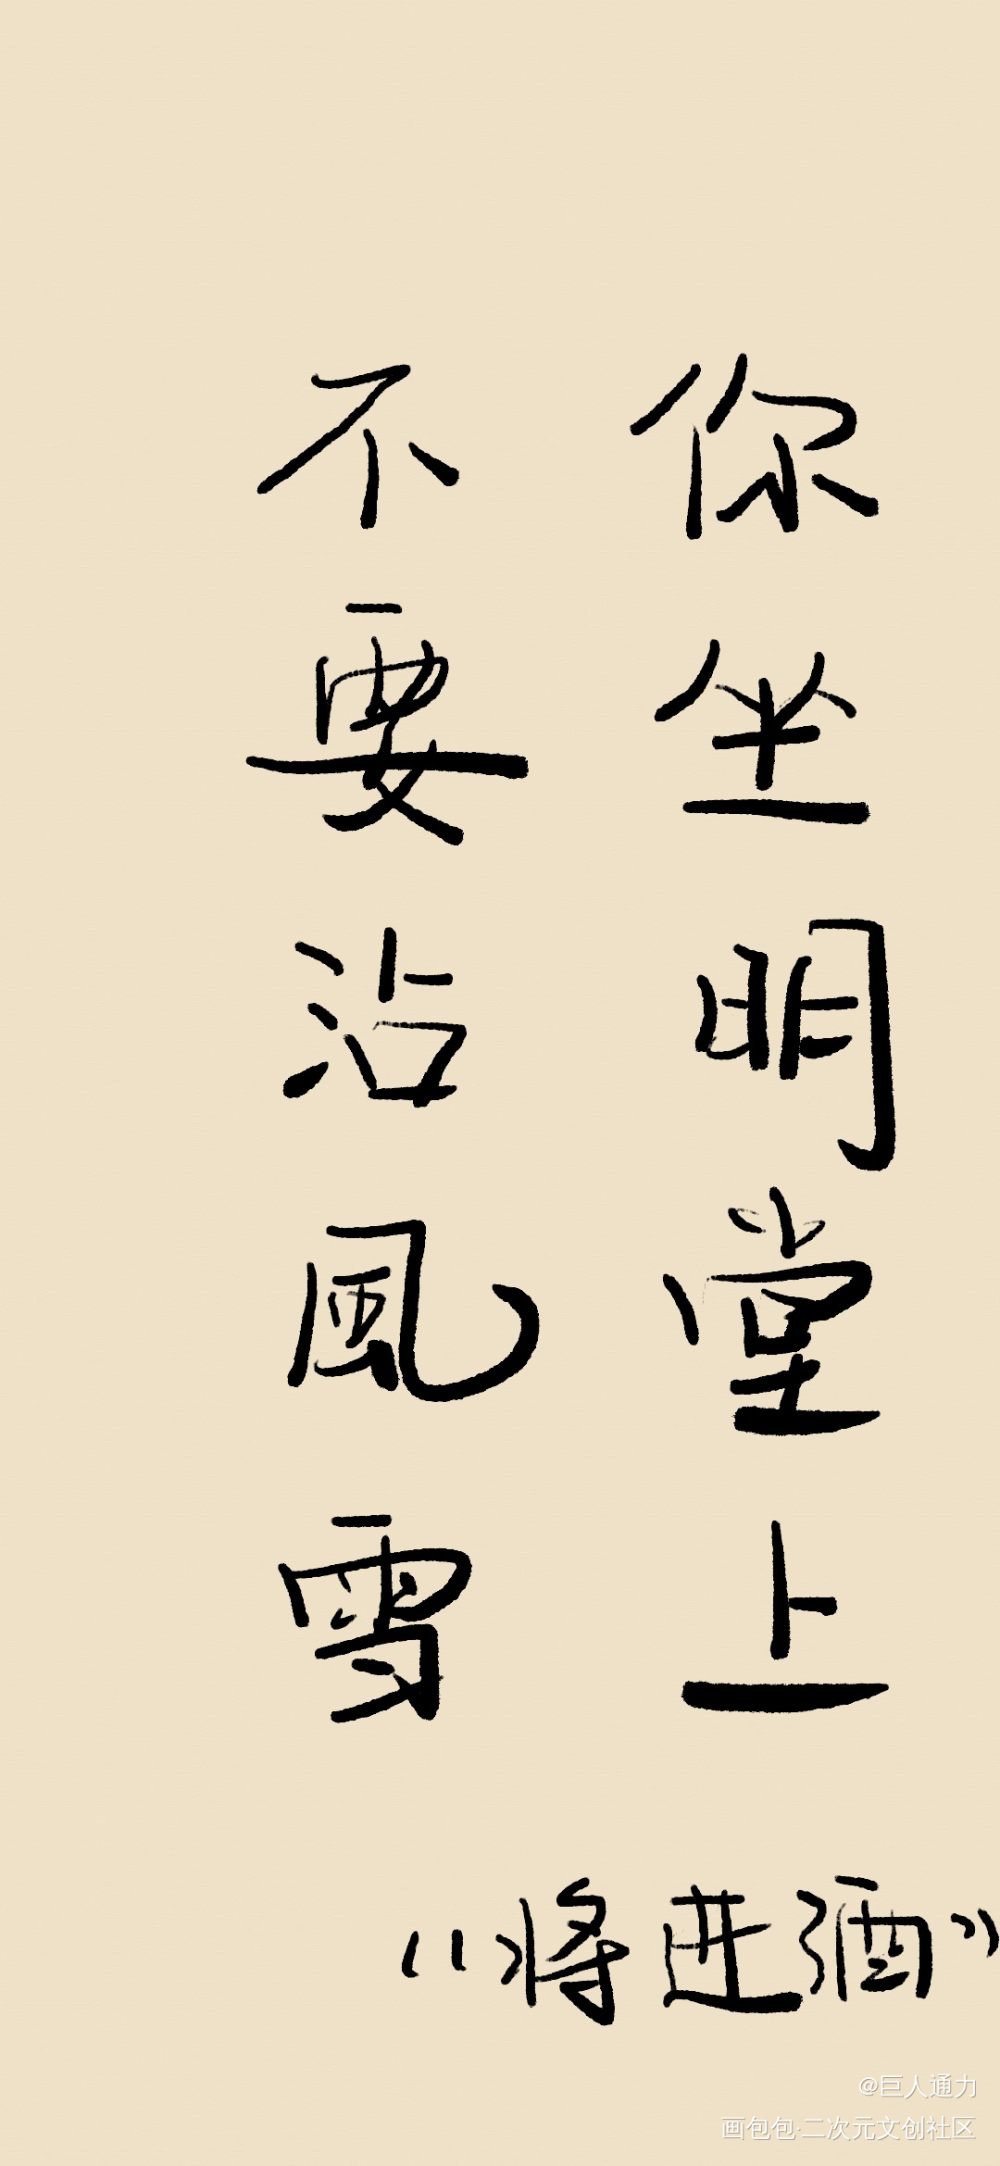 你坐明堂上
不要沾風雪
《将进酒》
@巨人通力
画包包·二次元文创社区